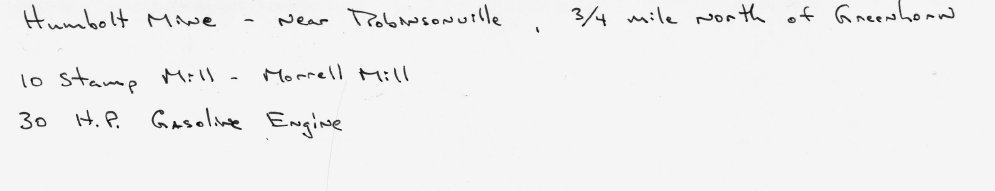 Humbolt Mine - Near Robinsonville, 3/4 mile North of Greenhorn
10 Stamp Mill - Morrell Mill
30 H.P. Gasoline Engine